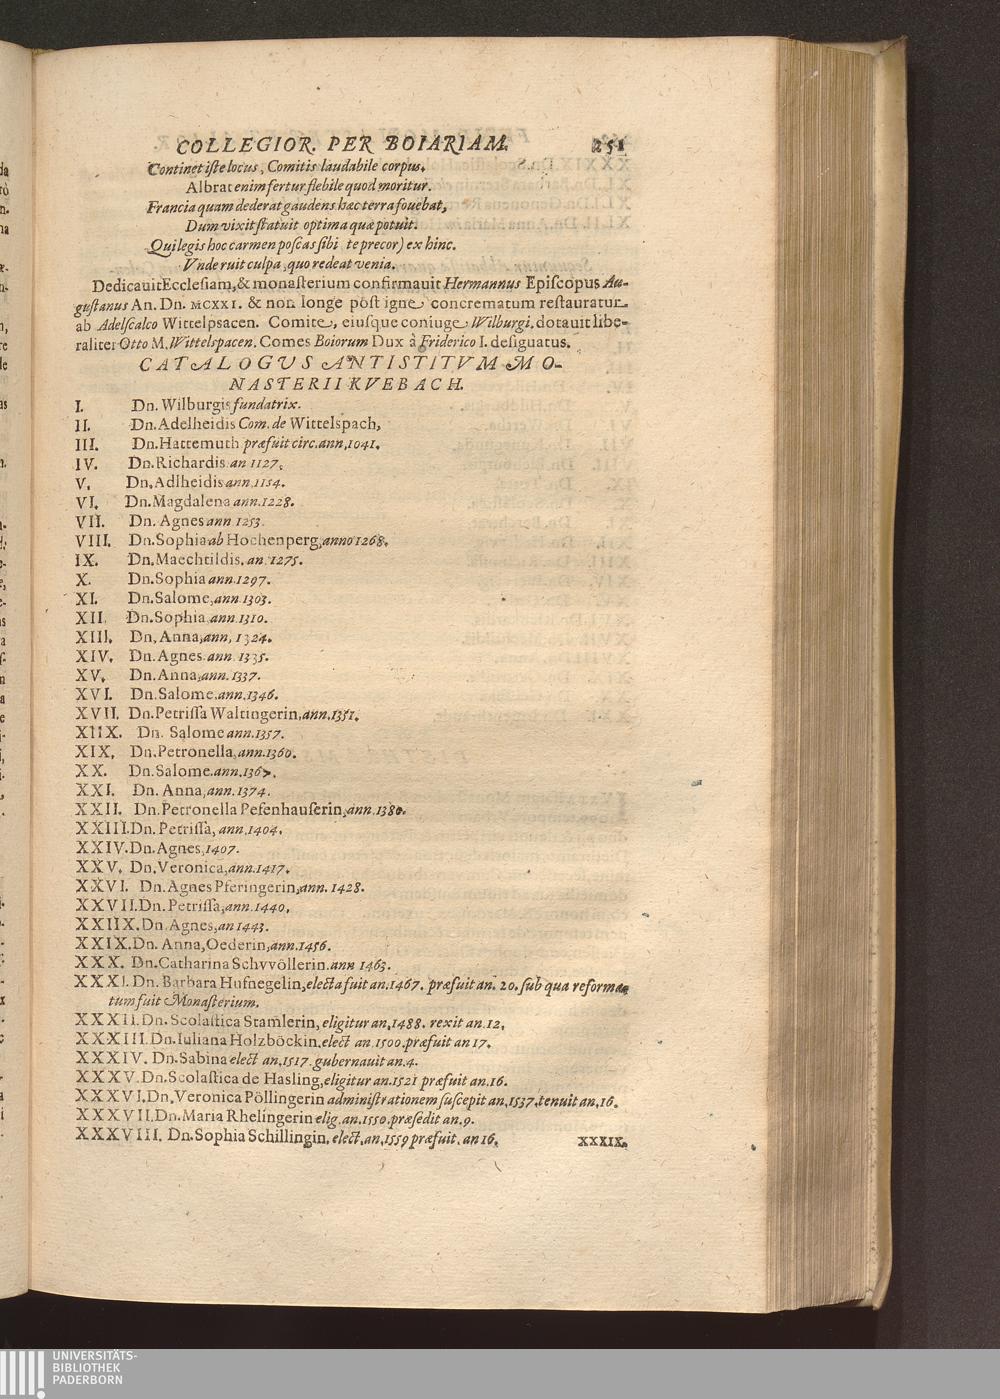 COLLEGIOR. PER BOIARIAM. 251
Continet iste locus, Comitis laudabile corpus.
Albrat enim fertur flebile quod moritur.
Francia quam dederat gaudens hæc terra fouebat,
Dum vixit statuit optima quæ potuit.
Qui legis hoc carmen poscas sibi te precor) ex hinc.
Vnde ruit culpa, quo redeat venia.
Dedicauit Ecclesiam, & monasterium confirmauit Hermannus Episcopus Au-
gustanus An. Dn. MCXXI. & non longe post igne concrematum restauratur
ab Adelscalco Wittelpsacen. Comite, eiusque coniuge Wilburgi. dotauit libe-
raliter Otto M. Wittelspacen. Comes Boiorum Dux â Friderico I. designatus.
CATALOGVS ANTISTITVM MO-
NASTERII KVEBACH.
I. Dn. Wilburgis fundatrix.
II. Dn. Adelheidis Com. de Wittelspach,
III. Dn. Hattemuth præfuit circ. ann, 1041.
IV. Dn. Richardis an 1127.
V. Dn. Adlheidis ann. 1154.
VI. Dn. Magdalena ann. 1228.
VII. Dn. Agnes ann 1253.
VIII. Dn. Sophia ab Hochenperg, anno 1268.
IX. Dn. Maechtildis. an. 1275.
X. Dn. Sophia ann. 1297.
XI. Dn. Salome, ann. 1303.
XII. Dn. Sophia ann. 1310.
XIII. Dn. Anna, ann, 1324.
XIV. Dn. Agnes ann. 1335.
XV. Dn. Anna, ann. 1337.
XVI. Dn. Salome. ann. 1346.
XVII. Dn. Petrissa Waltingerin, ann. 1351.
XIIX. Dn. Salome ann. 1357.
XIX. Dn. Petronella, ann. 1360.
XX. Dn. Salome. ann.
XXI. Dn. Anna, ann. 1374.
XXII. Dn. Petronella Pefenhauserin, ann. 1380.
XXIII. Dn. Petrissa, ann. 1404.
XXIV. Dn. Agnes, 1407.
XXV. Dn. Veronica, ann. 1417.
XXVI. Dn. Agnes Pferingerin, ann. 1428.
XXVII. Dn. Petrissa, ann. 1440.
XXIIX. Dn. Agnes, an 1443.
XXIX. Dn. Anna, Oederin, ann. 1456.
XXX. Dn. Catharina Schvvöllerin. ann 1463.
XXXI. Dn. Barbara Hufnegelin, electa fuit an. 1467. præfuit an. 20. sub qua reforma-
tum fuit Monasterium.
XXXII. Dn. Scolastica Stamlerin, eligitur an, 1488. rexit an. 12.
XXXIII. Dn. Iuliana Holzböckin. elect an. 1500. præfuit an 17.
XXXIV. Dn. Sabina elect an. 1517. gubernauit an. 4.
XXXV. Dn. Scolastica de Hasling, eligitur an. 1521 præfuit an. 16.
XXXVI. Dn. Veronica Pöllingerin administrationem suscepit an. 1537. tenuit an. 16.
XXXVII. Dn. Maria Rhelingerin elig. an. 1550. præsedit an. 9.
XXXVIII. Dn. Sophia Schillingin. elect. an. 1559 præfuit. an 16. XXXIX.
UNIVERSITÄTS-
BIBLIOTHEK
PADERBORN